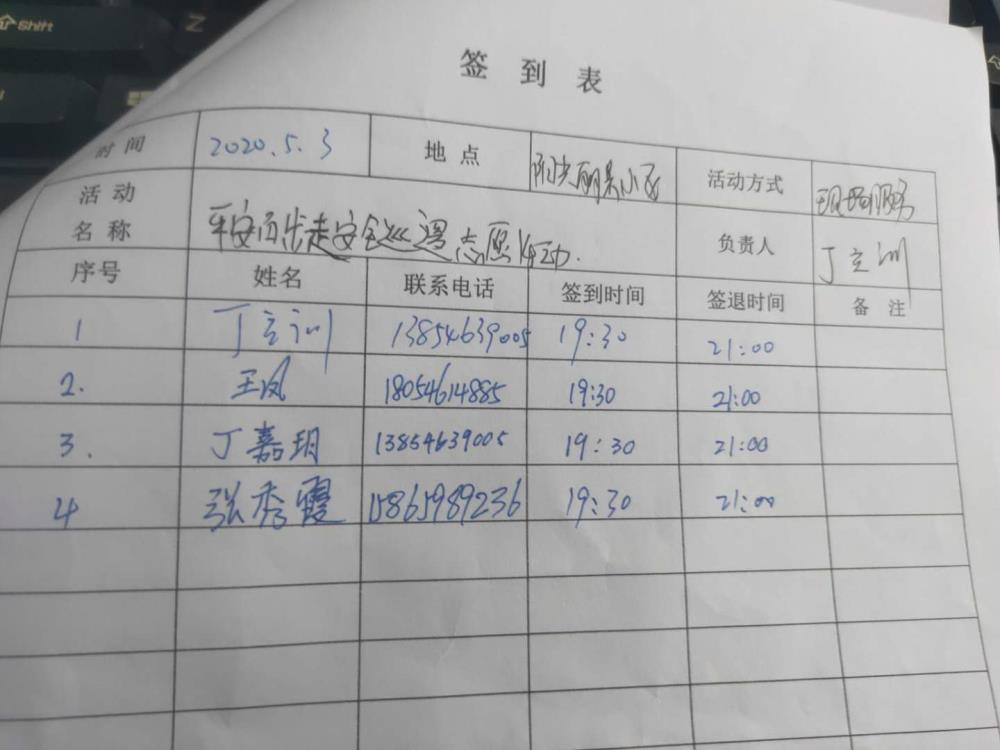 Shift
Z
签到表
时间 2020.5.3 地点 阳光丽景小区 活动方式 现场服务
活动名称 平安百步走安全巡逻志愿活动. 负责人 丁立训
序号 姓名 联系电话 签到时间 签退时间 备注
1 丁立训 13854639005 19:30 21:00
2. 王凤 18054614885 19:30 21:00
3. 丁嘉玥 13854639005 19:30 21:00
4 张秀霞 15865989236 19:30 21:00